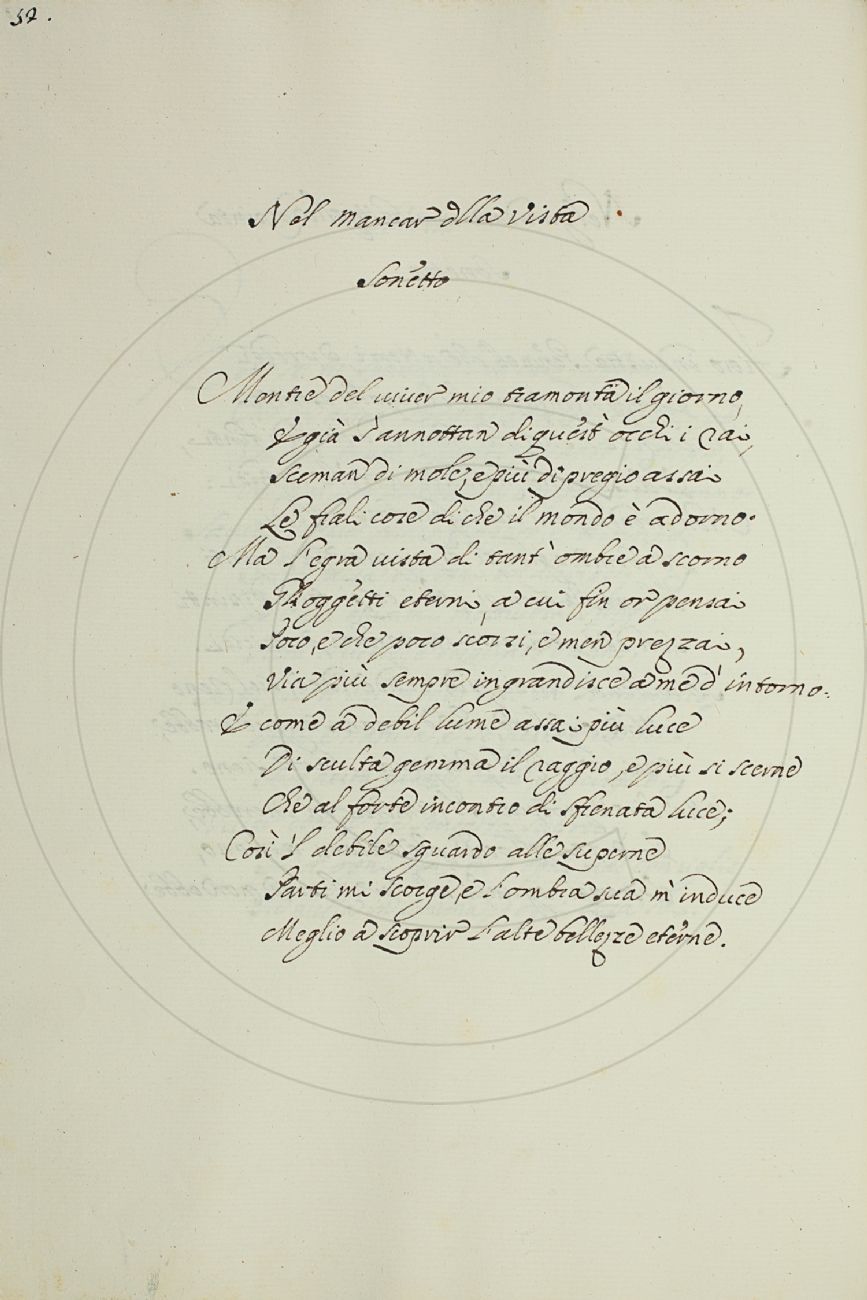 52.
Nel mancar della vista
Sonetto
Mentre del viver mio tramonta il giorno,
E già s'annottan di quest'occhi i rai,
Sceman di mole, e più di pregio assai
Le frali cose di che il mondo è adorno.
Ma l'egra vista di tant'ombre a scorno
Gli oggetti eterni, a cui fin or pensai
Poco, e che poco scòrsi, e men prezzai,
Via più sempre ingrandisce a me d'intorno.
E come a debil lume assai più luce
Di sculta gemma il raggio, e più si scerne
Che al forte incontro di sfrenata luce;
Così 'l debile sguardo alle superne
Parti mi scorge, e l'ombra sua m'induce
Meglio a scoprir l'alte bellezze eterne.